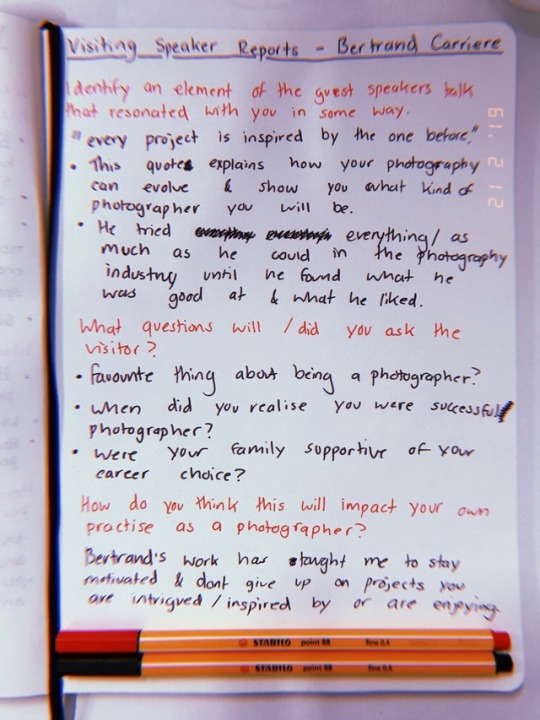 Visiting Speaker Reports - Bertrand Carriere
Identify an element of the guest speakers talk
that resonated with you in some way.
"every project is inspired by the one before."
• This quote explains how your photography
can evolve & show you what kind of
photographer you will be.
• He tried everything/ as
much as he could in the photography
industry until he found what he
was good at & what he liked.
What questions will / did you ask the
visitor?
• favourite thing about being a photographer?
• when did you realise you were successful
photographer?
• were your family supportive of your
career choice?
How do you think this will impact your own
practise as a photographer?
Bertrand's work has taught me to stay
motivated & dont give up on projects you
are intrigued / inspired by or are enjoying.
STABILO point 88 fine 0,4
STABILO point 88 fine 0,4
19 2 12